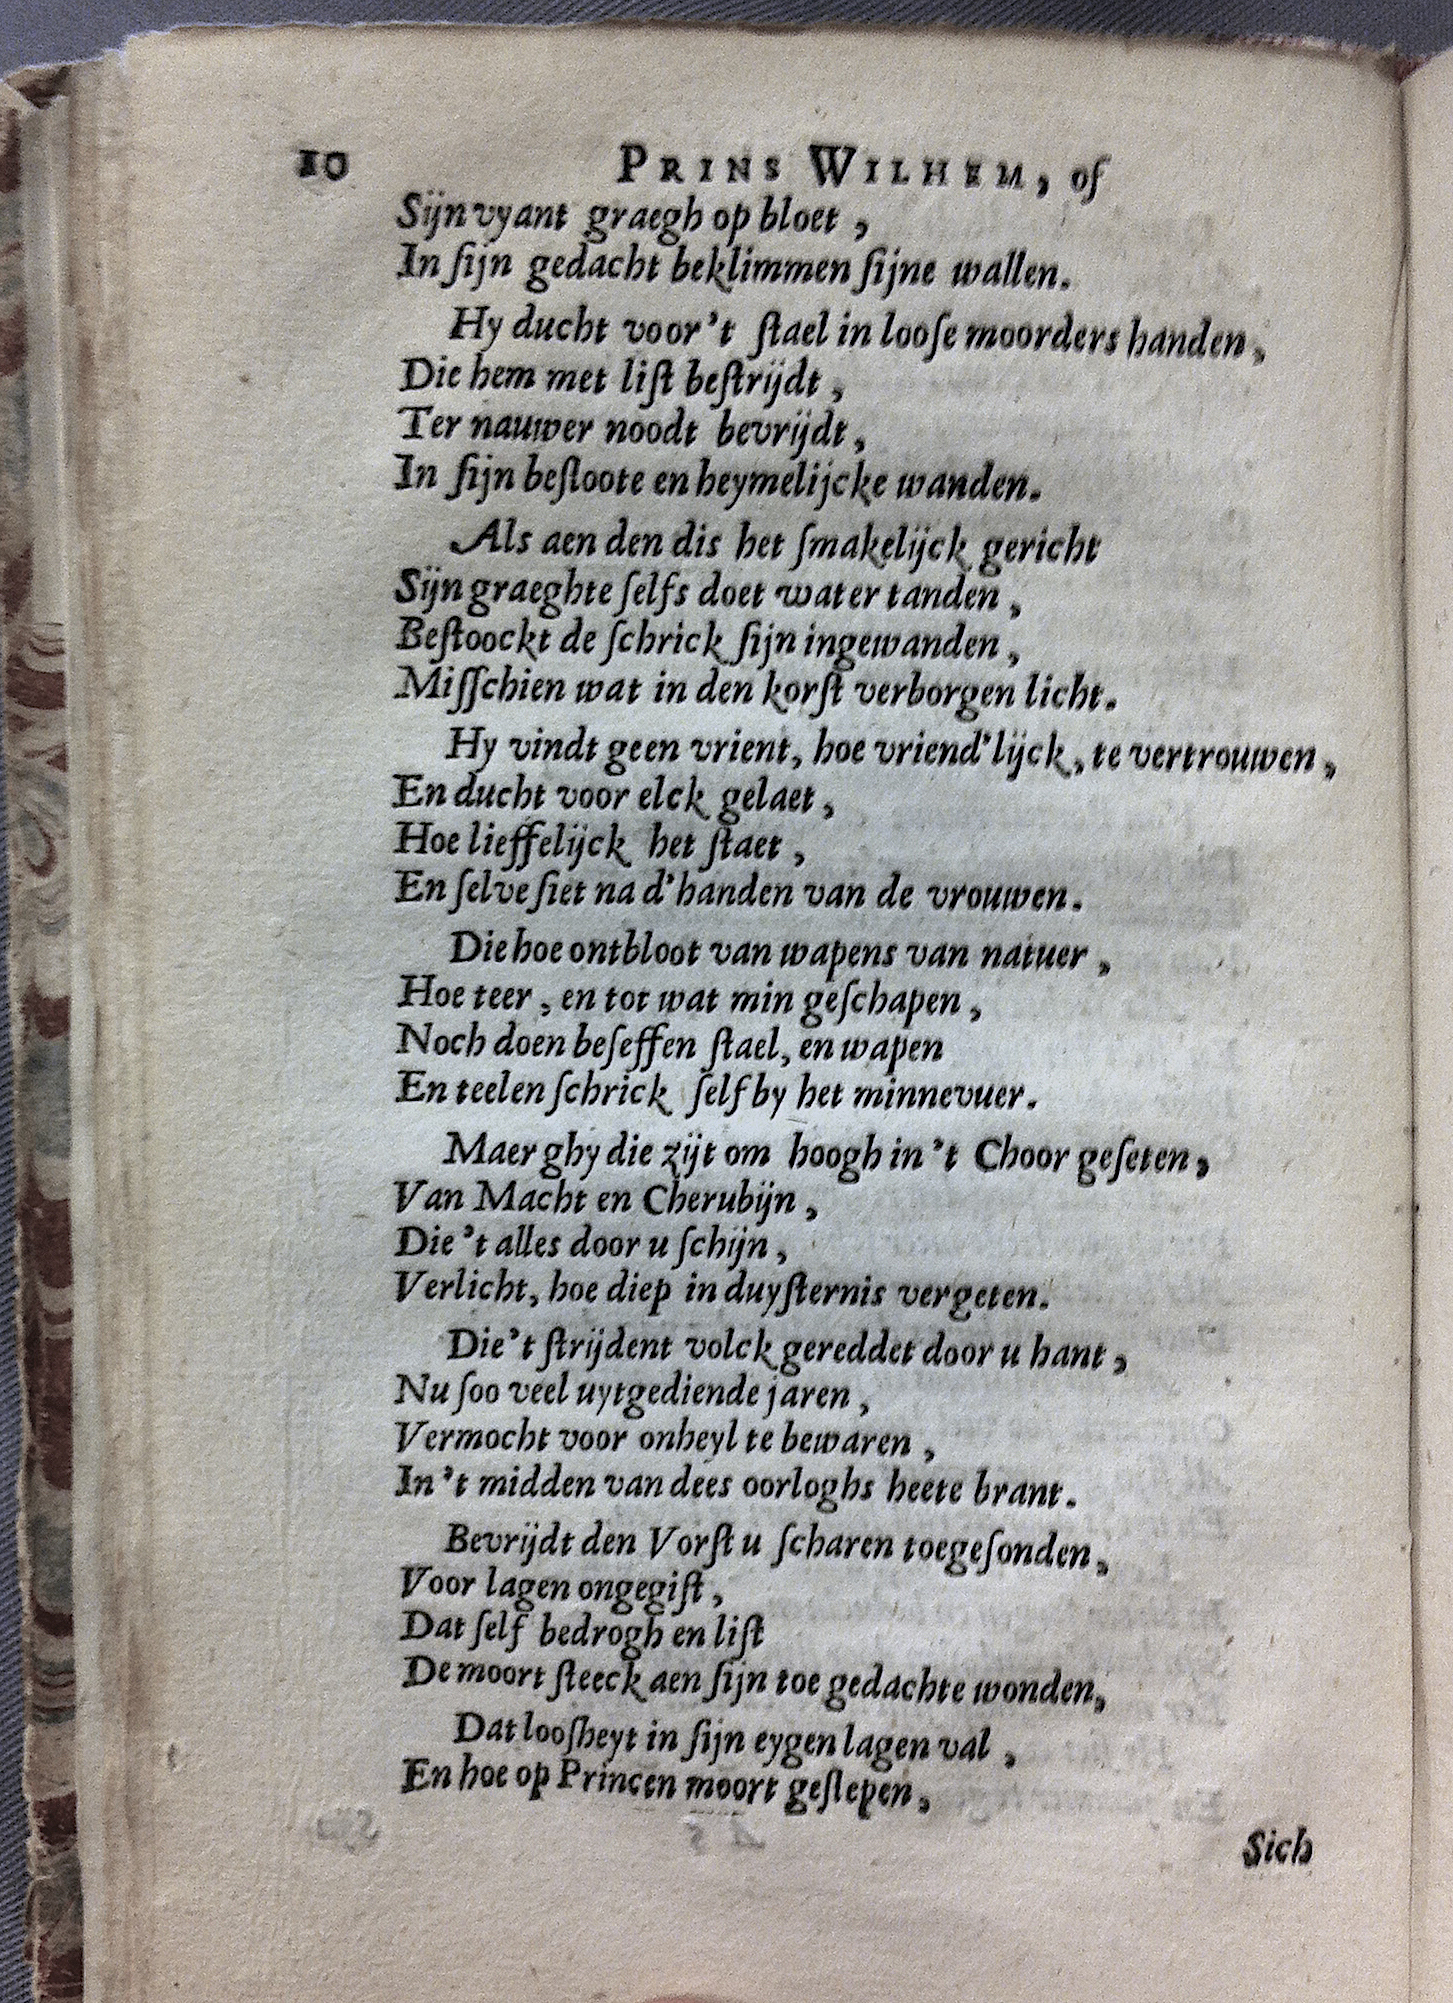 10 PRINS WILHEM, of
Sijn vyant graegh op bloet,
In ſijn gedacht beklimmen ſijne wallen.
Hy ducht voor't ſtael in looſe moorders handen,
Die hem met liſt beſtrijdt,
Ter nauwer noodt bevrijdt,
In ſijn beſloote en heymelijcke wanden.
Als aen den dis het ſmakelijck gericht
Sijn graeghte ſelfs doet water tanden,
Beſtoockt de ſchrick ſijn ingewanden,
Miſſchien wat in den korſt verborgen licht.
Hy vindt geen vrient, hoe vriend'lijck, te vertrouwen,
En ducht voor elck gelaet,
Hoe lieffelijck het ſtaet,
En ſelve ſiet na d'handen van de vrouwen.
Die hoe ontbloot van wapens van natuer,
Hoe teer, en tot wat min geſchapen,
Noch doen beſeffen ſtael, en wapen
En teelen ſchrick ſelf by het minnevuer.
Maer ghy die zijt om hoogh in 't Choor geſeten,
Van Macht en Cherubijn,
Die 't alles door u ſchijn,
Verlicht, hoe diep in duyſternis vergeten.
Die 't ſtrijdent volck gereddet door u hant,
Nu ſoo veel uytgediende jaren,
Vermocht voor onheyl te bewaren,
In 't midden van dees oorloghs heete brant.
Bevrijdt den Vorſt u ſcharen toegeſonden,
Voor lagen ongegiſt,
Dat ſelf bedrogh en liſt
De moort ſteeck aen ſijn toe gedachte wonden,
Dat looſheyt in ſijn eygen lagen val,
En hoe op Princen moort geſlepen,
Sich